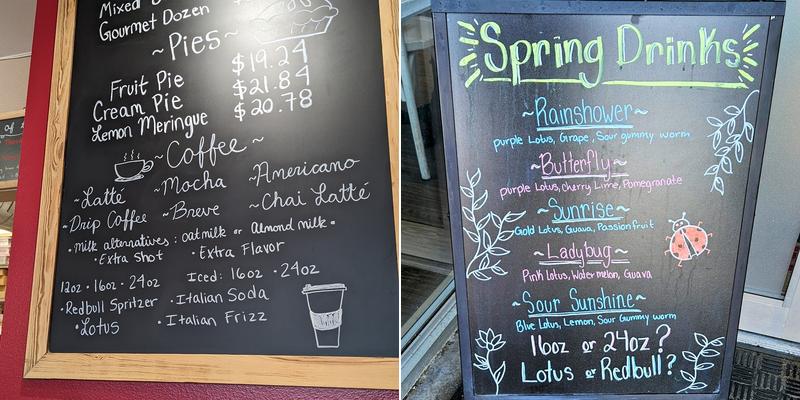 Mixed
Gourmet Dozen
~Pies~
Fruit Pie $19.24
Cream Pie $21.84
Lemon Meringue $20.78
~Coffee~
~Latté ~Mocha ~Americano
~Drip Coffee ~Breve ~Chai Latté
• Milk alternatives: oatmilk or Almond milk •
• Extra Shot • Extra Flavor
12oz • 16oz • 24oz Iced: 16oz • 24oz
• Redbull Spritzer • Italian Soda
• Lotus • Italian Frizz
Spring Drinks
~Rainshower~
purple Lotus, Grape, Sour gummy worm
~Butterfly~
purple Lotus, Cherry, Lime, Pomegranate
~Sunrise~
Gold Lotus, Guava, Passionfruit
~Ladybug~
Pink Lotus, Watermelon, Guava
~Sour Sunshine~
Blue Lotus, Lemon, Sour Gummy worm
16oz or 24oz?
Lotus or Redbull?